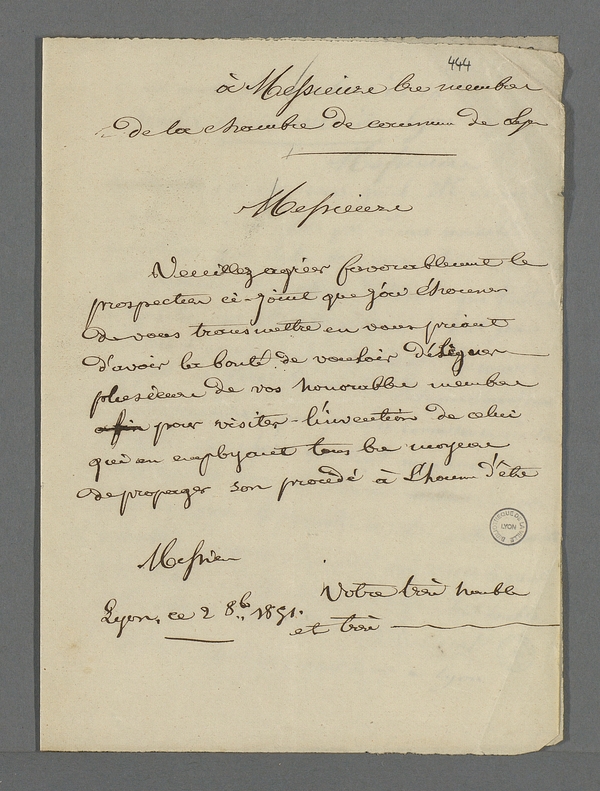 444
à Messieurs les membres
de la chambre de commerce de Lyon
Messieurs
Veuillez agréer favorablement le
prospectus ci-joint que j'ai l'honneur
de vous transmettre en vous priant
d'avoir la bonté de vouloir déléguer
plusieurs de vos honorables membres
afin pour visiter l'invention de celui
qui en employant tous les moyens
de propager son procédé à l'honneur d'être
Messieurs
Lyon, ce 2 8bre 1851.
Votre très humble
et très
BIBLIOTHEQUE DE LA VILLE LYON